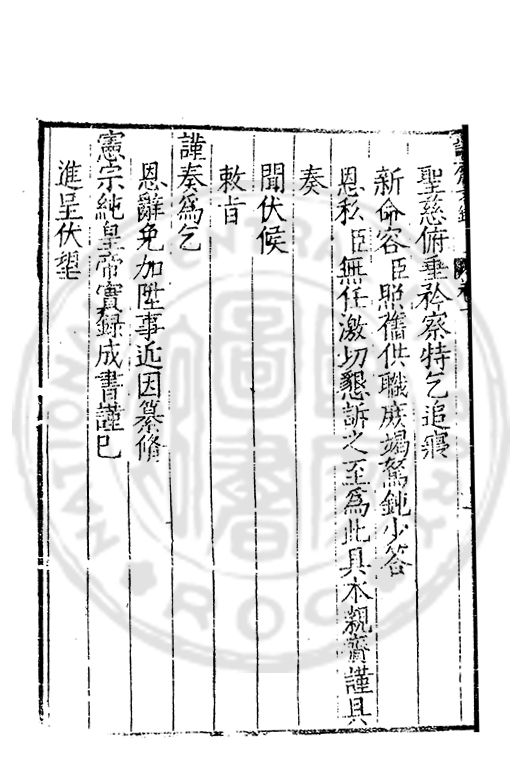 聖慈俯垂矜察特乞追寢
新命容臣照舊供職庶竭駑鈍少答
恩私臣無任激切懇訴之至爲此具本親齎謹具
奏
聞伏候
敕旨
謹奏爲乞
恩辭免加陞事近因纂脩
憲宗純皇帝實録成書謹已
進呈伏望
NATIONAL CENTRAL LIBRARY